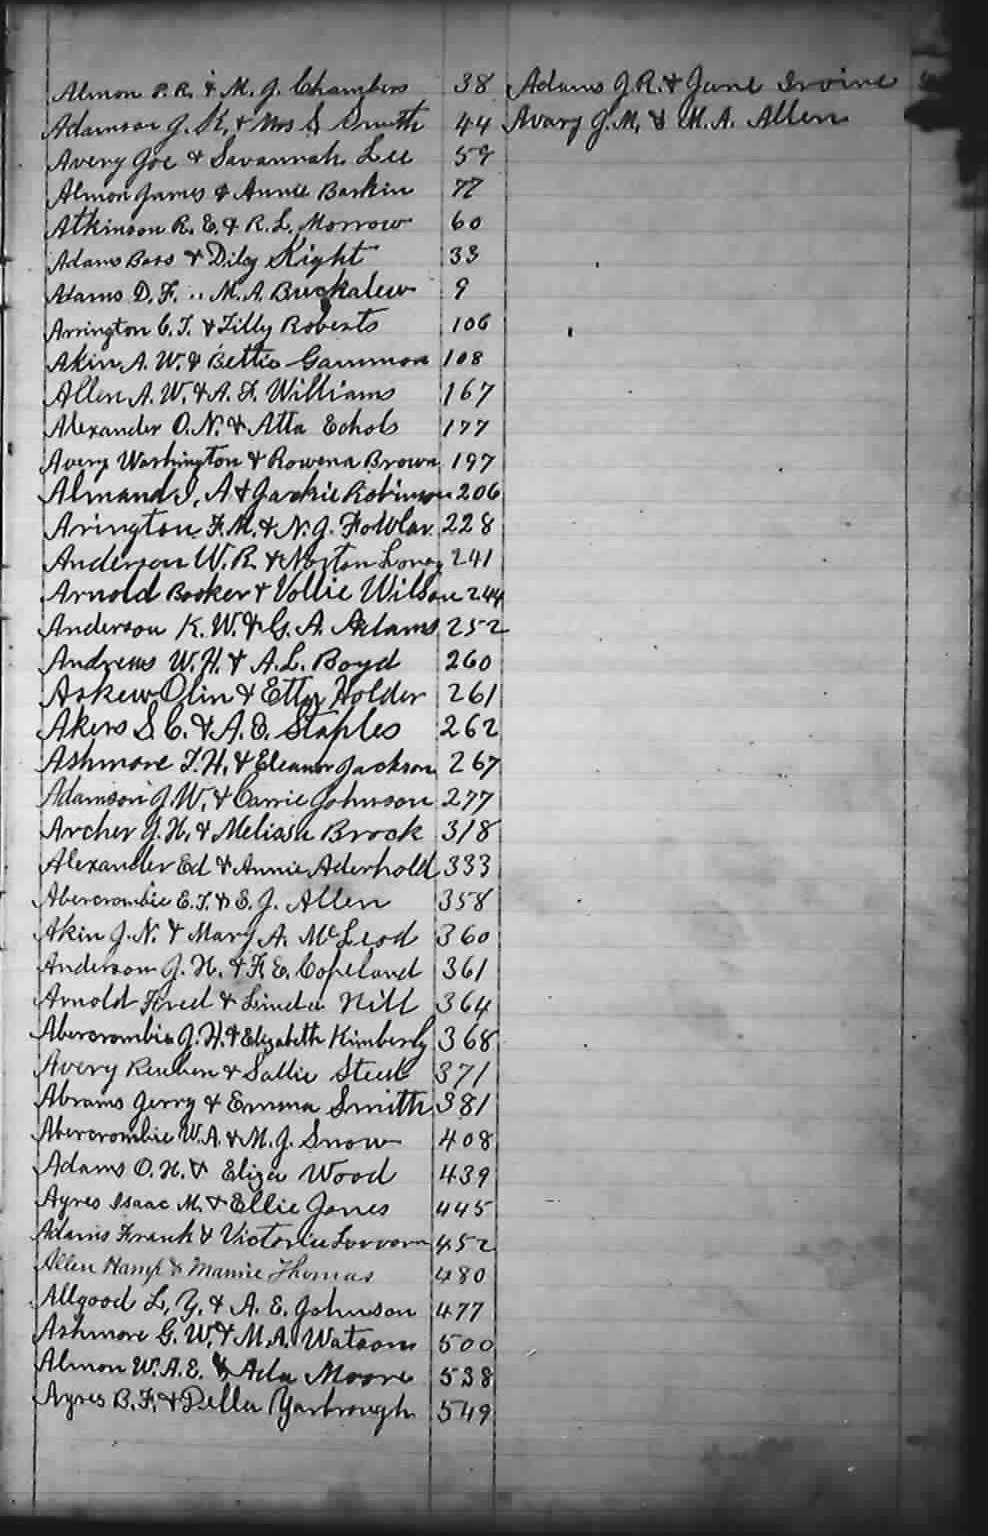 Almon P. R. & M. J. Chambers 38
Adamson J. K. & Mrs S. Smith 44
Avery Joe & Savannah Lee 59
Almon James & Annie Barkin 77
Atkinson R. E. & R. L. Morrow 60
Adams Bass & Dily Kight 33
Adams D. F. " M. A. Buckalew 9
Arrington C. T. & Tilly Roberts 106
Akin A. W. & Bettie Gammon 108
Allen A. W. & A. F. Williams 167
Alexander O. N. & Atta Echols 177
Avery Washington & Rowena Brown 197
Almand I. A & Jackie Robinson 206
Arington F. M. & N. J. Fowlar 228
Anderson W. R. & Norton 241
Arnold Booker & Vollie Wilson 244
Anderson K. W. & G. A. Adams 252
Andrews W. H. & A. L. Boyd 260
Askew Olin & Etty Holder 261
Akers S. C. & A. E. Staples 262
Ashmore T. H. & Eleanor Jackson 267
Adamson J. W. & Carrie Johnson 277
Archer J. H. & Melissa Brock 318
Alexander Ed & Annie Aderhold 333
Abercrombie E. T. & E. J. Allen 358
Akin J. N. & Mary A. McLeod 360
Anderson J. H. & F. E. Copeland 361
Arnold Fred & Linda Hill 364
Abercrombie J. H. & Elizabeth Kimberly 368
Avery Reuben & Sallie Steed 371
Abrams Jerry & Emma Smith 381
Abercrombie W. A. & M. J. Snow 408
Adams O. H. & Eliza Wood 439
Ayres Isaac M. & Ellie Jones 445
Adams Frank & Victoria Lovvorn 452
Allen Hamp & Mamie Thomas 480
Allgood L. Y. & A. E. Johnson 477
Ashmore G. W. & M. A. Watson 500
Almon W. A. E. & Ada Moore 538
Ayres B. F. & Della Yarbrough 549
Adams J. R. & Jane Irvine
Avary J. M. & M. A. Allen